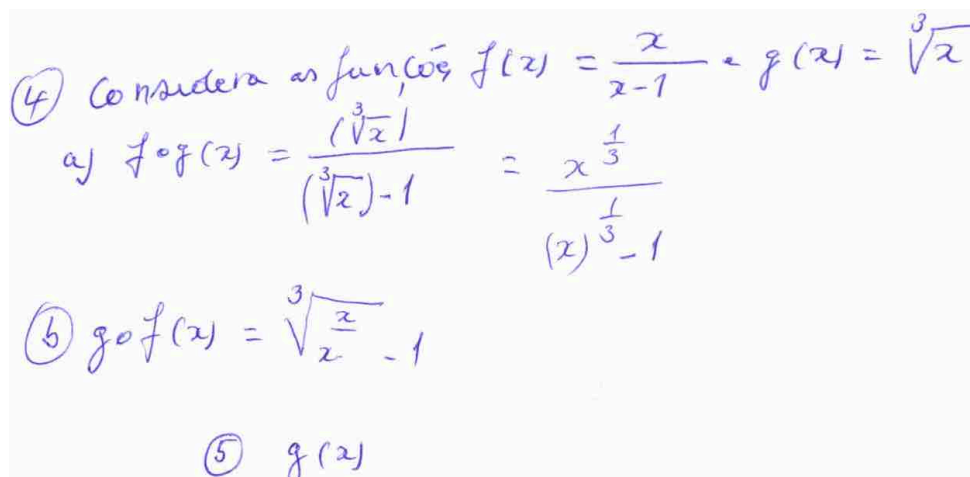 4 Considera as funções f(x) = x/(x-1) e g(x) = ∛x
a) f∘g(x) = (∛x)/((∛x)-1) = x^(1/3)/((x)^(1/3) - 1)
b g∘f(x) = ∛(x/x) - 1
5 g(x)